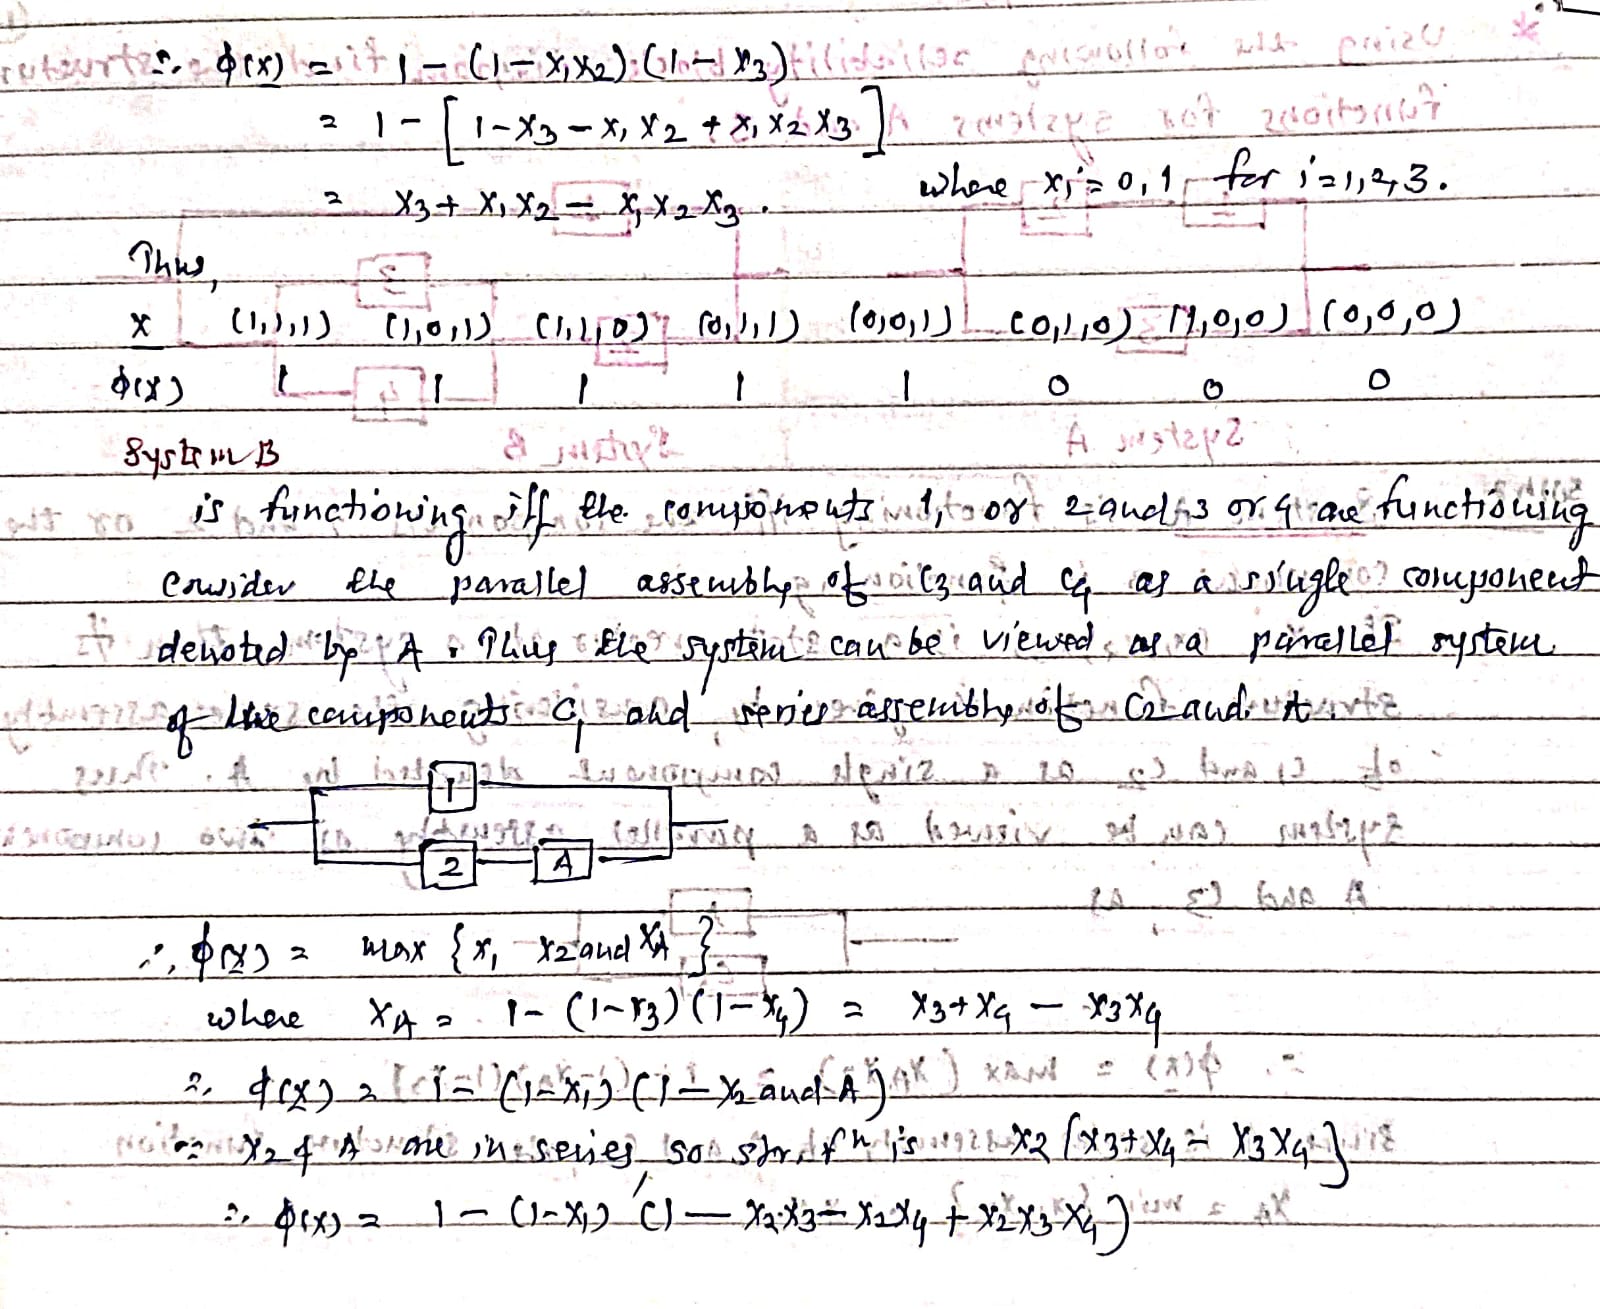 ∴ ϕ(x) = 1 - (1 - x₁x₂) · (1 - x₃)
= 1 - [ 1 - x₃ - x₁ x₂ + x₁ x₂ x₃ ]
= x₃ + x₁ x₂ - x₁ x₂ x₃ . where xᵢ = 0, 1 for i = 1, 2, 3.
Thus,
x (1,1,1) (1,0,1) (1,1,0) (0,1,1) (0,0,1) (0,1,0) (1,0,0) (0,0,0)
ϕ(x) 1 1 1 1 1 0 0 0
System B
is functioning iff the components 1, or 2 and 3 or 4 are functioning
Consider the parallel assembly of C3 and C4 as a single component
denoted by A. Thus the system can be viewed as a parallel system
of two components C₁ and series assembly of C2 and A.
1
2 A
∴ ϕ(x) = max { x₁, x₂ and x_A }
where x_A = 1 - (1 - x₃) (1 - x₄) = x₃ + x₄ - x₃x₄
∴ ϕ(x) = 1 - (1 - x₁) (1 - x₂ and A)
∵ x₂ & A are in series, so str. fⁿ is x₂ (x₃ + x₄ - x₃ x₄)
∴ ϕ(x) = 1 - (1 - x₁) (1 - x₂x₃ - x₂x₄ + x₂x₃x₄)